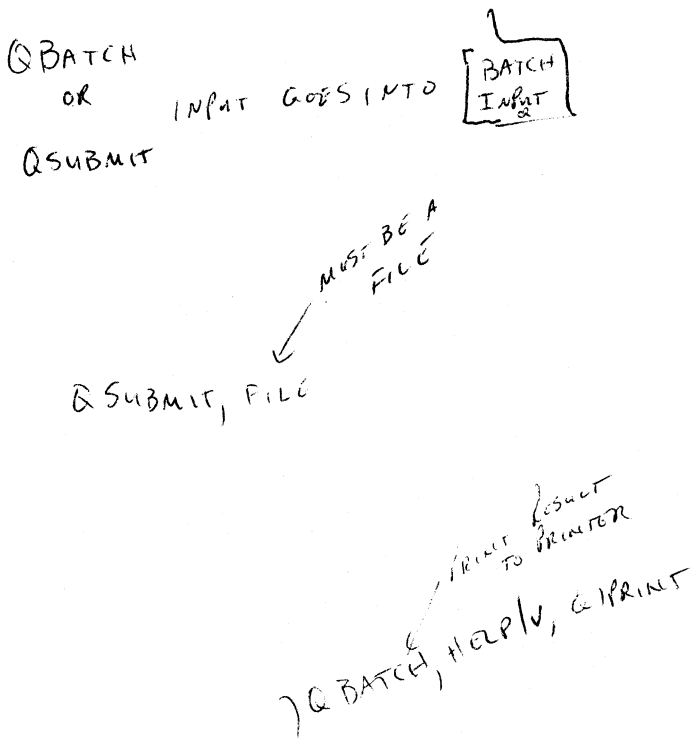 QBATCH
OR
QSUBMIT
INPUT GOES INTO
BATCH
INPUT
2
MUST BE A
FILE
QSUBMIT, FILE
PRINT RESULT
TO PRINTER
) QBATCH, HELP/V, Q|PRINT